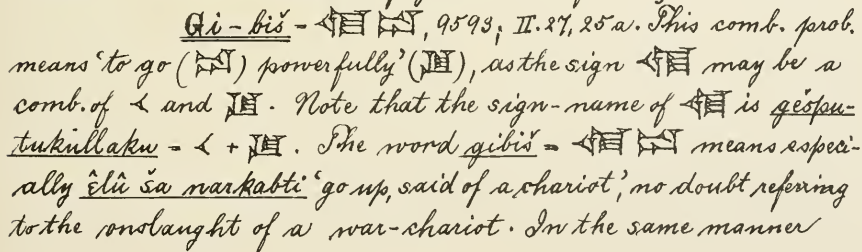 Gi-biš = , 9593; II. 27, 25a. This comb. prob.
means ‘to go ( ) powerfully’ ( ), as the sign may be a
comb. of 𒌋 and . Note that the sign-name of is gešpu-
tukullaku = 𒌋 + . The word gibiš = means especi-
ally êlû ša narkabti ‘go up, said of a chariot’, no doubt referring
to the onslaught of a war-chariot. In the same manner